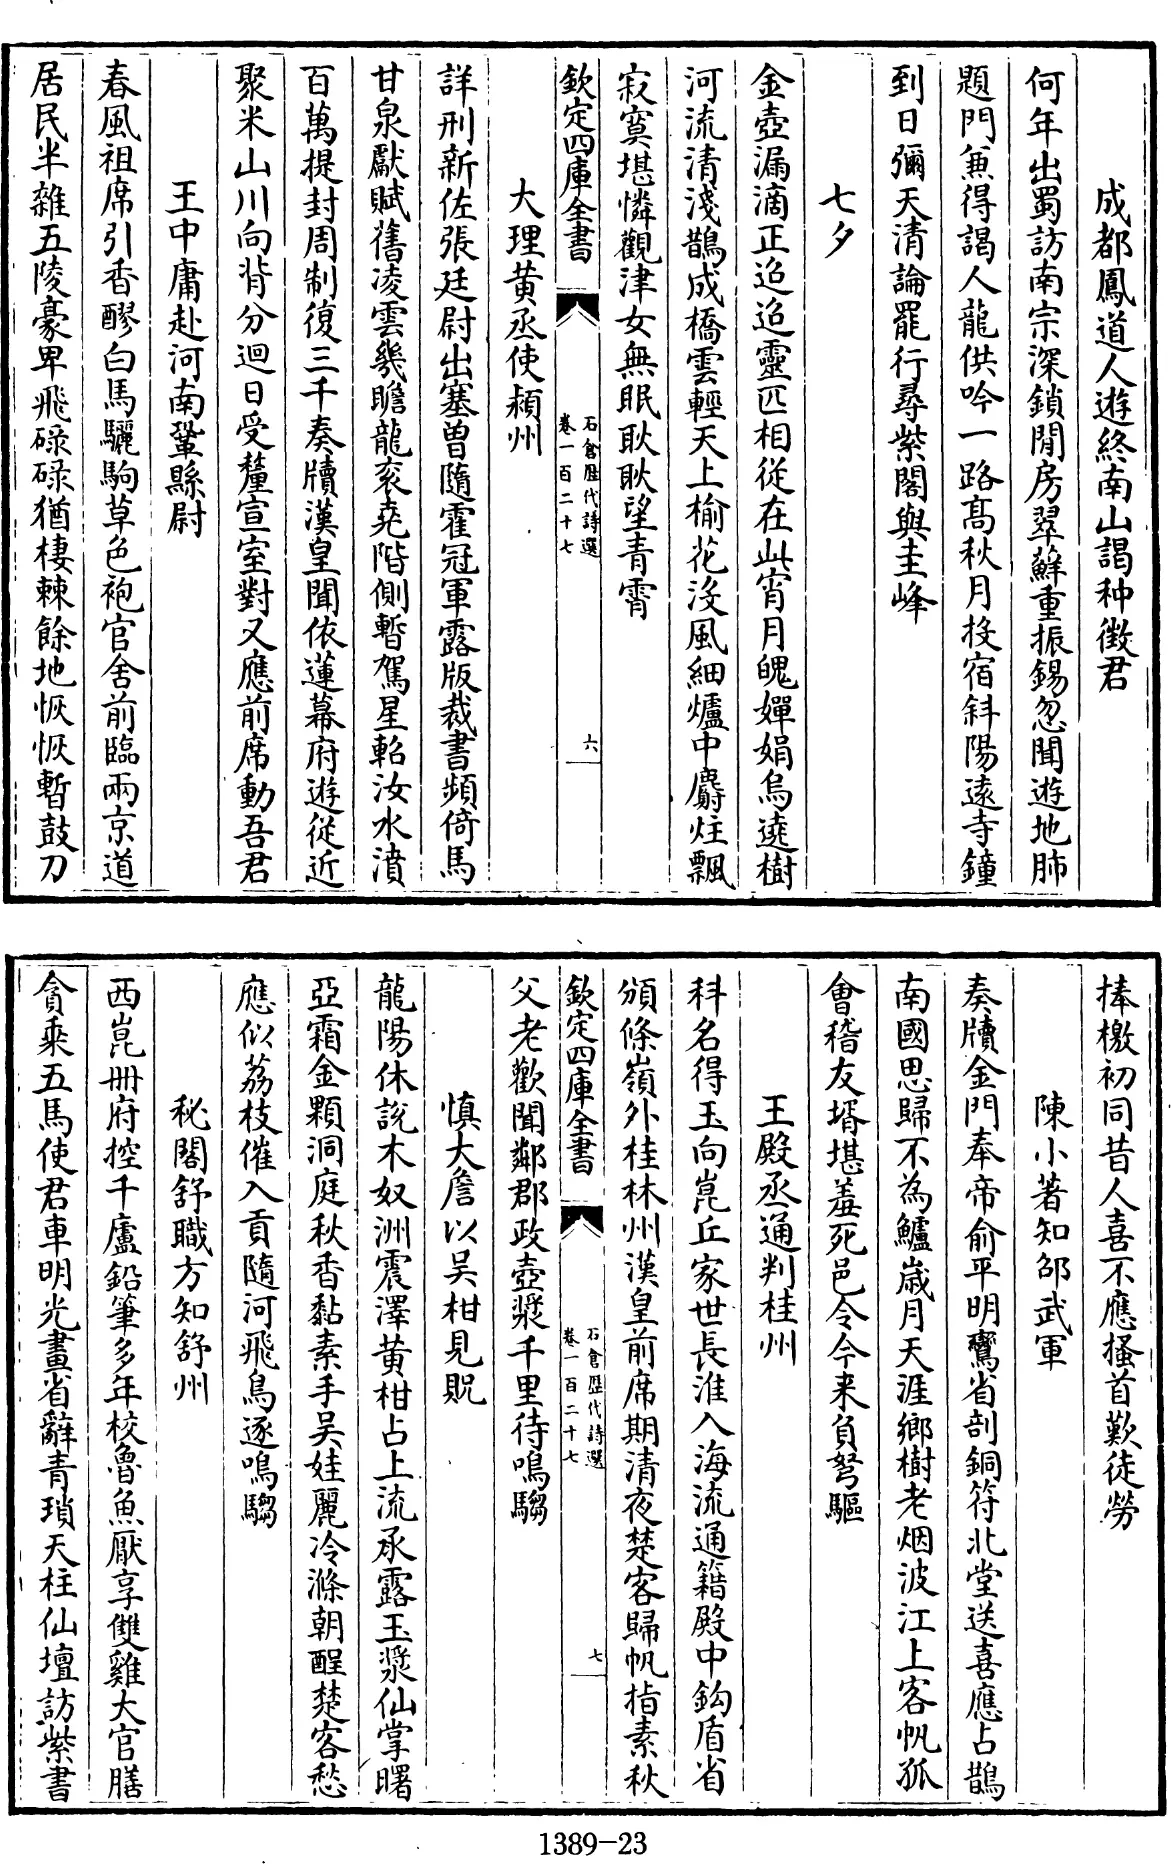 成都鳳道人遊終南山謁种徵君
何年出蜀訪南宗深鎖閒房翠蘚重振錫忽聞遊地肺
題門兼得謁人龍供吟一路髙秋月投宿斜陽逺寺鐘
到日彌天清論罷行尋紫閣與圭峰
七夕
金壺漏滴正迢迢靈匹相從在此宵月魄嬋娟烏遶樹
河流清淺鵲成橋雲輕天上榆花沒風細爐中麝炷飄
寂寞堪憐觀津女無眠耿耿望青霄
欽定四庫全書
石倉歴代詩選
卷一百二十七
六
大理黄丞使潁州
詳刑新佐張廷尉出塞曽隨霍冠軍露版裁書頻倚馬
甘泉獻賦舊凌雲幾瞻龍衮堯階側暫駕星軺汝水濆
百萬提封周制復三千奏牘漢皇聞依蓮幕府遊從近
聚米山川向背分迴日受釐宣室對又應前席動吾君
王中庸赴河南鞏縣尉
春風祖席引香醪白馬驪駒草色袍官舍前臨兩京道
居民半雜五陵豪卑飛碌碌猶棲棘餘地恢恢暫鼓刀
捧檄初同昔人喜不應搔首歎徒勞
陳小著知邵武軍
奏牘金門奉帝俞平明鸞省剖銅符北堂送喜應占鵲
南國思歸不為鱸嵗月天涯鄉樹老烟波江上客帆孤
會稽友壻堪羞死邑令今来負弩驅
王殿丞通判桂州
科名得玉向崑丘家世長淮入海流通籍殿中鈎盾省
頒條嶺外桂林州漢皇前席期清夜楚客歸帆指素秋
欽定四庫全書
石倉歴代詩選
卷一百二十七
七
父老歡聞鄰郡政壺漿千里待鳴騶
慎大詹以吴柑見貺
龍陽休說木奴洲震澤黄柑占上流承露玉漿仙掌曙
亞霜金顆洞庭秋香黏素手吴娃麗冷滌朝酲楚客愁
應似荔枝催入貢隨河飛鳥逐鳴騶
秘閣舒職方知舒州
西崑冊府控千廬鉛筆多年校魯魚厭享雙雞大官膳
貪乘五馬使君車明光畫省辭青瑣天柱仙壇訪紫書
1389-23